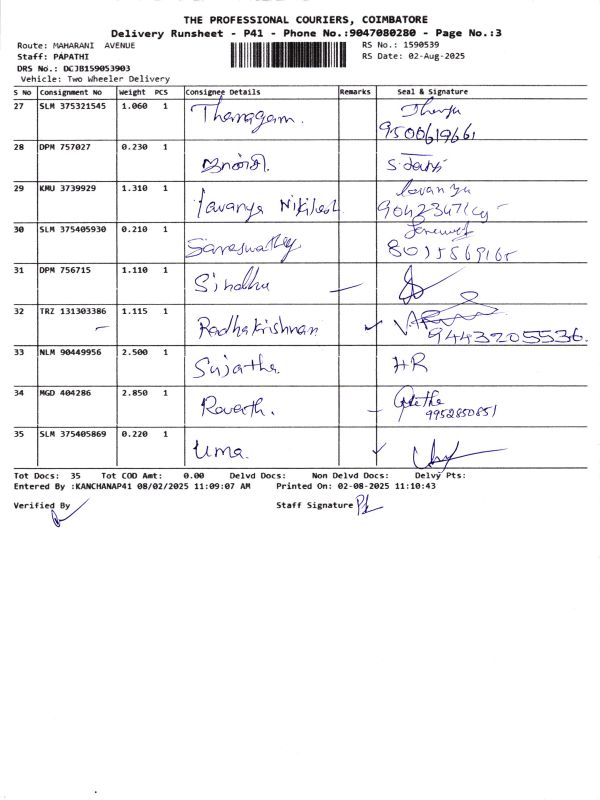 THE PROFESSIONAL COURIERS, COIMBATORE
Delivery Runsheet - P41 - Phone No.:9047080280 - Page No.:3
Route: MAHARANI AVENUE RS No.: 1590539
Staff: PAPATHI RS Date: 02-Aug-2025
DRS No.: DCJB159053903
Vehicle: Two Wheeler Delivery
S No Consignment No Weight PCS Consignee Details Remarks Seal & Signature
27 SLM 375321545 1.060 1 Thangam.
9500619661
28 DPM 757027 0.230 1
29 KMU 3739929 1.310 1 Lavanya Nikilesh Lavanya
30 SLM 375405930 0.210 1 Saraswathy
8015569165
31 DPM 756715 1.110 1 Sindhu
32 TRZ 131303386 1.115 1 Radhakrishnan
9443205536.
33 NLM 90449956 2.500 1 Sujatha. HR
34 MGD 404286 2.850 1
9952850851
35 SLM 375405869 0.220 1 Uma.
Tot Docs: 35 Tot COD Amt: 0.00 Delvd Docs: Non Delvd Docs: Delvy Pts:
Entered By :KANCHANAP41 08/02/2025 11:09:07 AM Printed On: 02-08-2025 11:10:43
Verified By Staff Signature